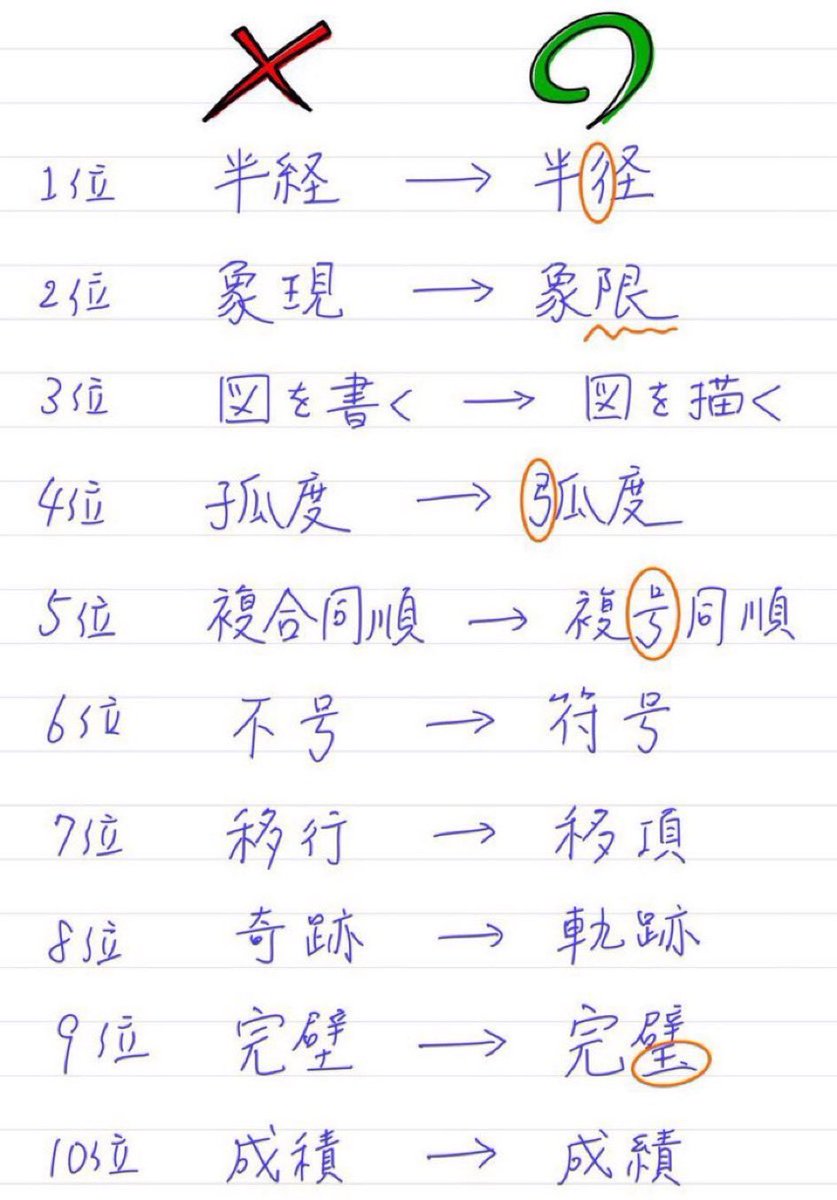 1位 半経 → 半径
2位 象現 → 象限
3位 図を書く → 図を描く
4位 孤度 → 弧度
5位 複合同順 → 複号同順
6位 不号 → 符号
7位 移行 → 移項
8位 奇跡 → 軌跡
9位 完壁 → 完璧
10位 成積 → 成績